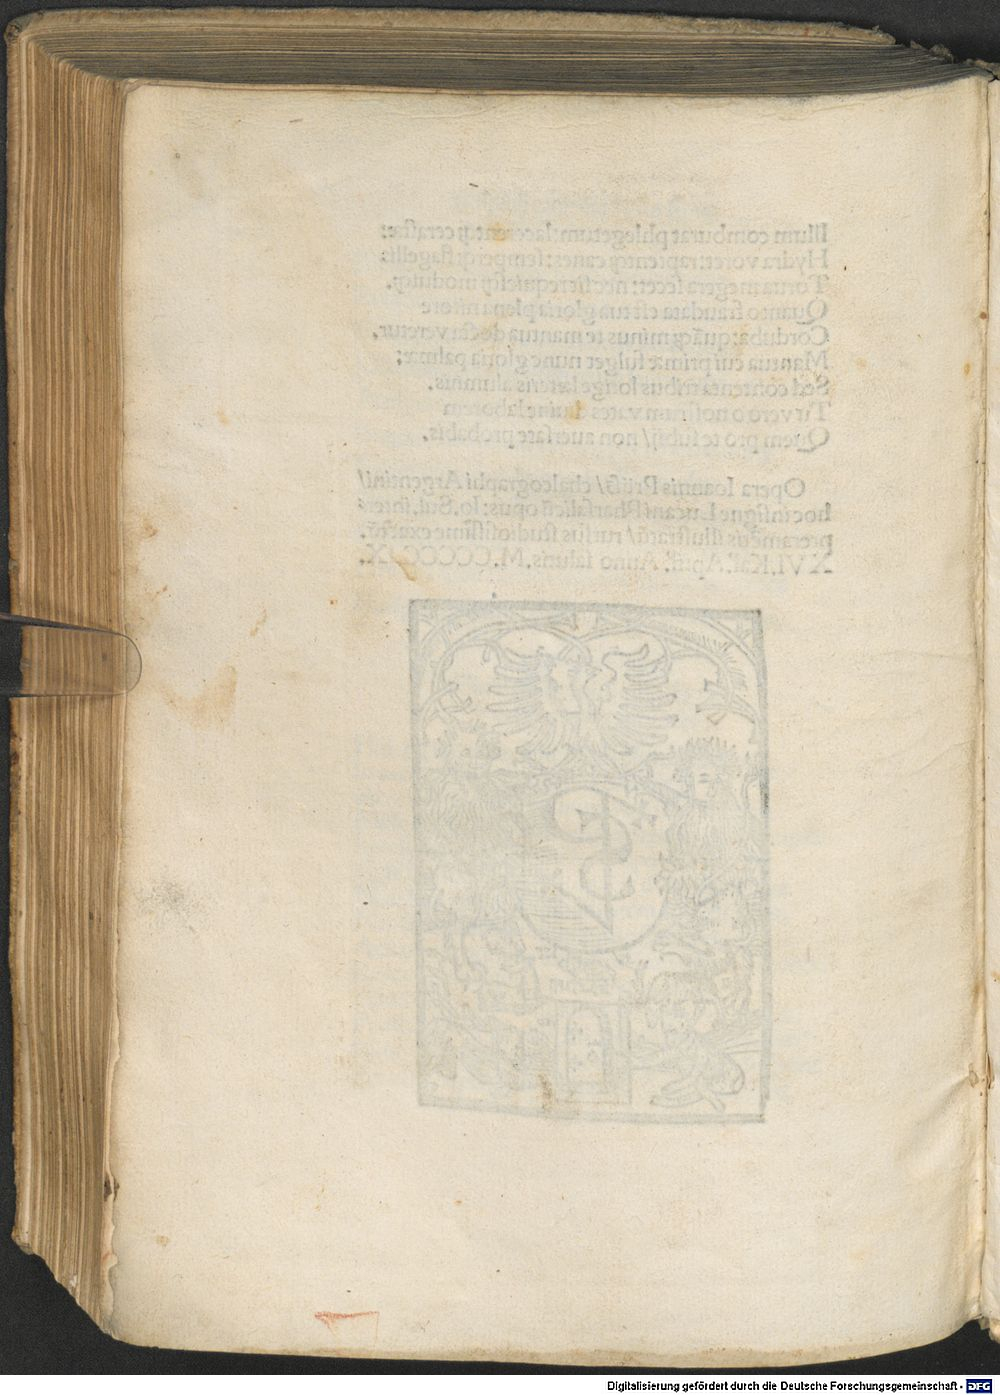 Illum comburat phlegetum: lacerentq; cerastæ:
Hydra voret: rapientq; canes: semperq; flagellis
Torua megera secet: nec stet requiesq; modusq;.
Quanto fraudata est tua gloria plena nitore
Corduba: quāq; minus te mantua docta veretur.
Mantua cui primæ fulget nunc gloria palmæ:
Sed contenta tribus longe læteris alumnis.
Tu vero o nostrum vates
laborem
Quem pro te subij/ non auersare probabis.
Opera Ioannis Prüß/ chalcographi Argentini/
hoc insigne Lucani Pharsalicū opus: Io. Sul.
illustratū/ rursus studiosissime exaratū.
XVI. Kal. April. Anno salutis. M. CCCCC. IX.
Digitalisierung gefördert durch die Deutsche Forschungsgemeinschaft - DFG